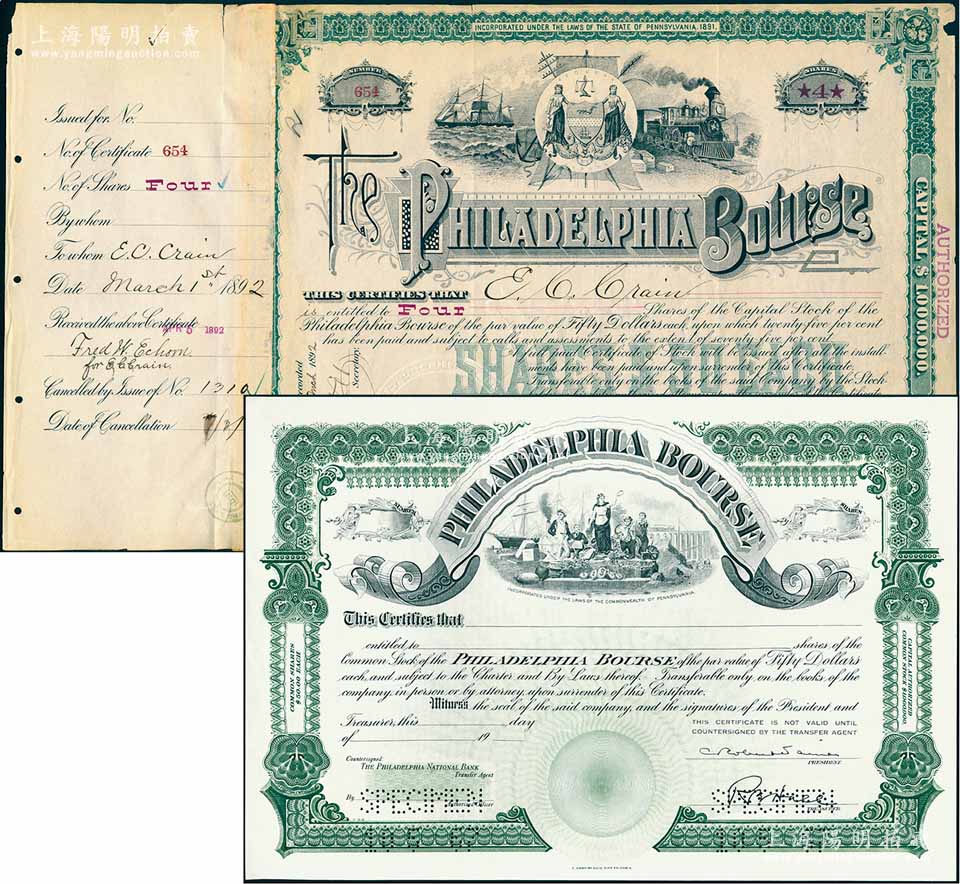 上海陽明拍賣
www.yangmingauction.com
Issued for No.
No. of Certificate 654
No. of Shares Four
By whom
To whom E. C. Crain
Date March 1st 1892
Received the above Certificate
5 1892
Fred W. Echorn
for E C Crain
Cancelled by Issue of No.
Date of Cancellation
INCORPORATED UNDER THE LAWS OF THE STATE OF PENNSYLVANIA, 1891.
NUMBER
654
SHARES
★4★
The Philadelphia Bourse
CAPITAL $1,000,000.
AUTHORIZED
THIS CERTIFIES THAT E. C. Crain
is entitled to Four Shares of the Capital Stock of the
Philadelphia Bourse of the par value of Fifty Dollars each, upon which twenty five per cent
has been paid and subject to calls and assessments to the extent of seventy five per cent.
A full paid Certificate of Stock will be issued after all the install-
ments have been paid and upon surrender of this Certificate.
Transferable only on the books of the said company by the Stock-
Secretary
1892
PHILADELPHIA BOURSE
SHARES
SHARES
INCORPORATED UNDER THE LAWS OF THE COMMONWEALTH OF PENNSYLVANIA
This Certifies that
entitled to shares of the
Common Stock of the PHILADELPHIA BOURSE of the par value of Fifty Dollars
each, and subject to the Charter and By Laws thereof. Transferable only on the books of the
company, in person or by attorney, upon surrender of this Certificate.
Witness the seal of the said company, and the signatures of the President and
Treasurer, this day
of 19
THIS CERTIFICATE IS NOT VALID UNTIL
COUNTERSIGNED BY THE TRANSFER AGENT
PRESIDENT
Countersigned
THE PHILADELPHIA NATIONAL BANK
Transfer Agent
By
SPECIMEN
SPECIMEN
COMMON SHARES
$50.00 EACH
CAPITAL AUTHORIZED
上海陽明拍賣